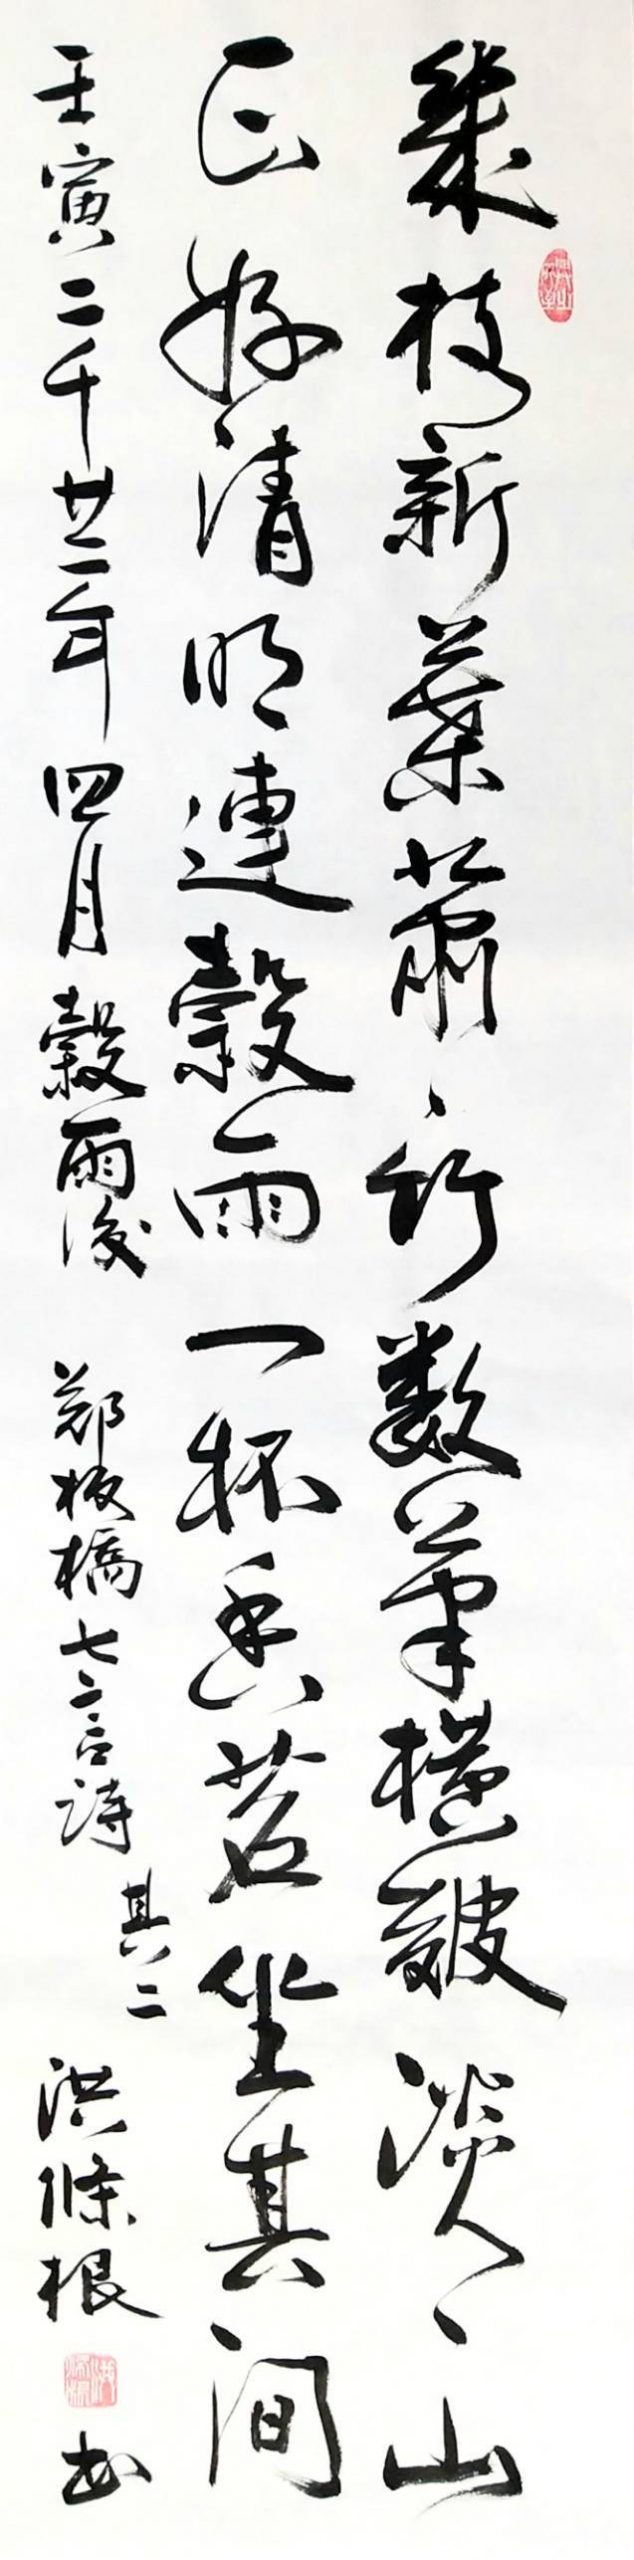 幾枝新葉蕭々竹数筆橫皴淡々山
正好清明連穀雨一杯香茗坐其間
壬寅二千廿二年四月穀雨後 鄭板橋七言詩 其二 洪條根 書